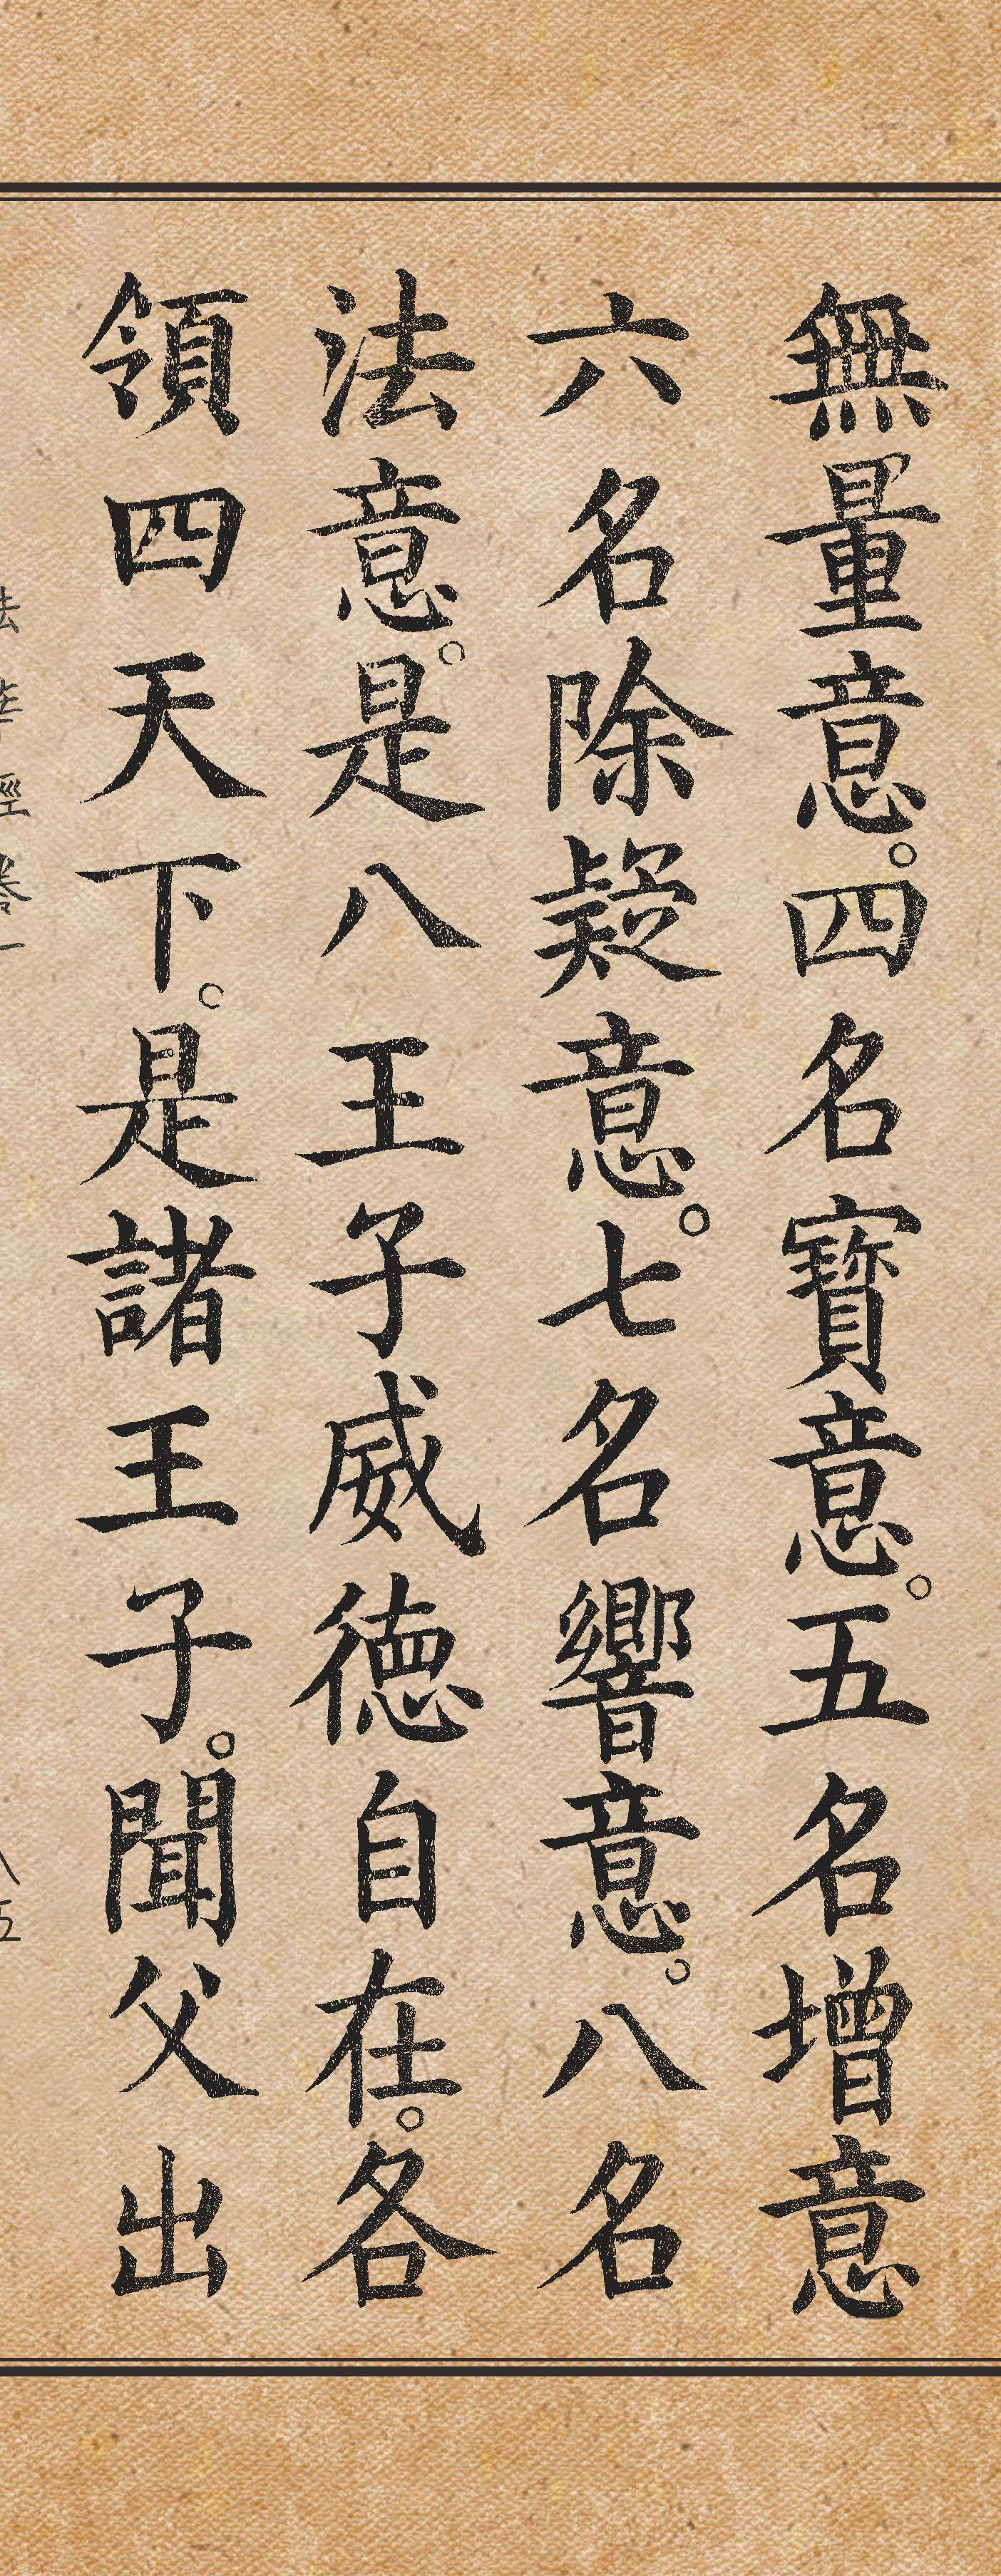 無量意。四名寶意。五名增意
六名除疑意。七名響意。八名
法意。是八王子威德自在。各
領四天下。是諸王子。聞父出
法華經卷一
八五